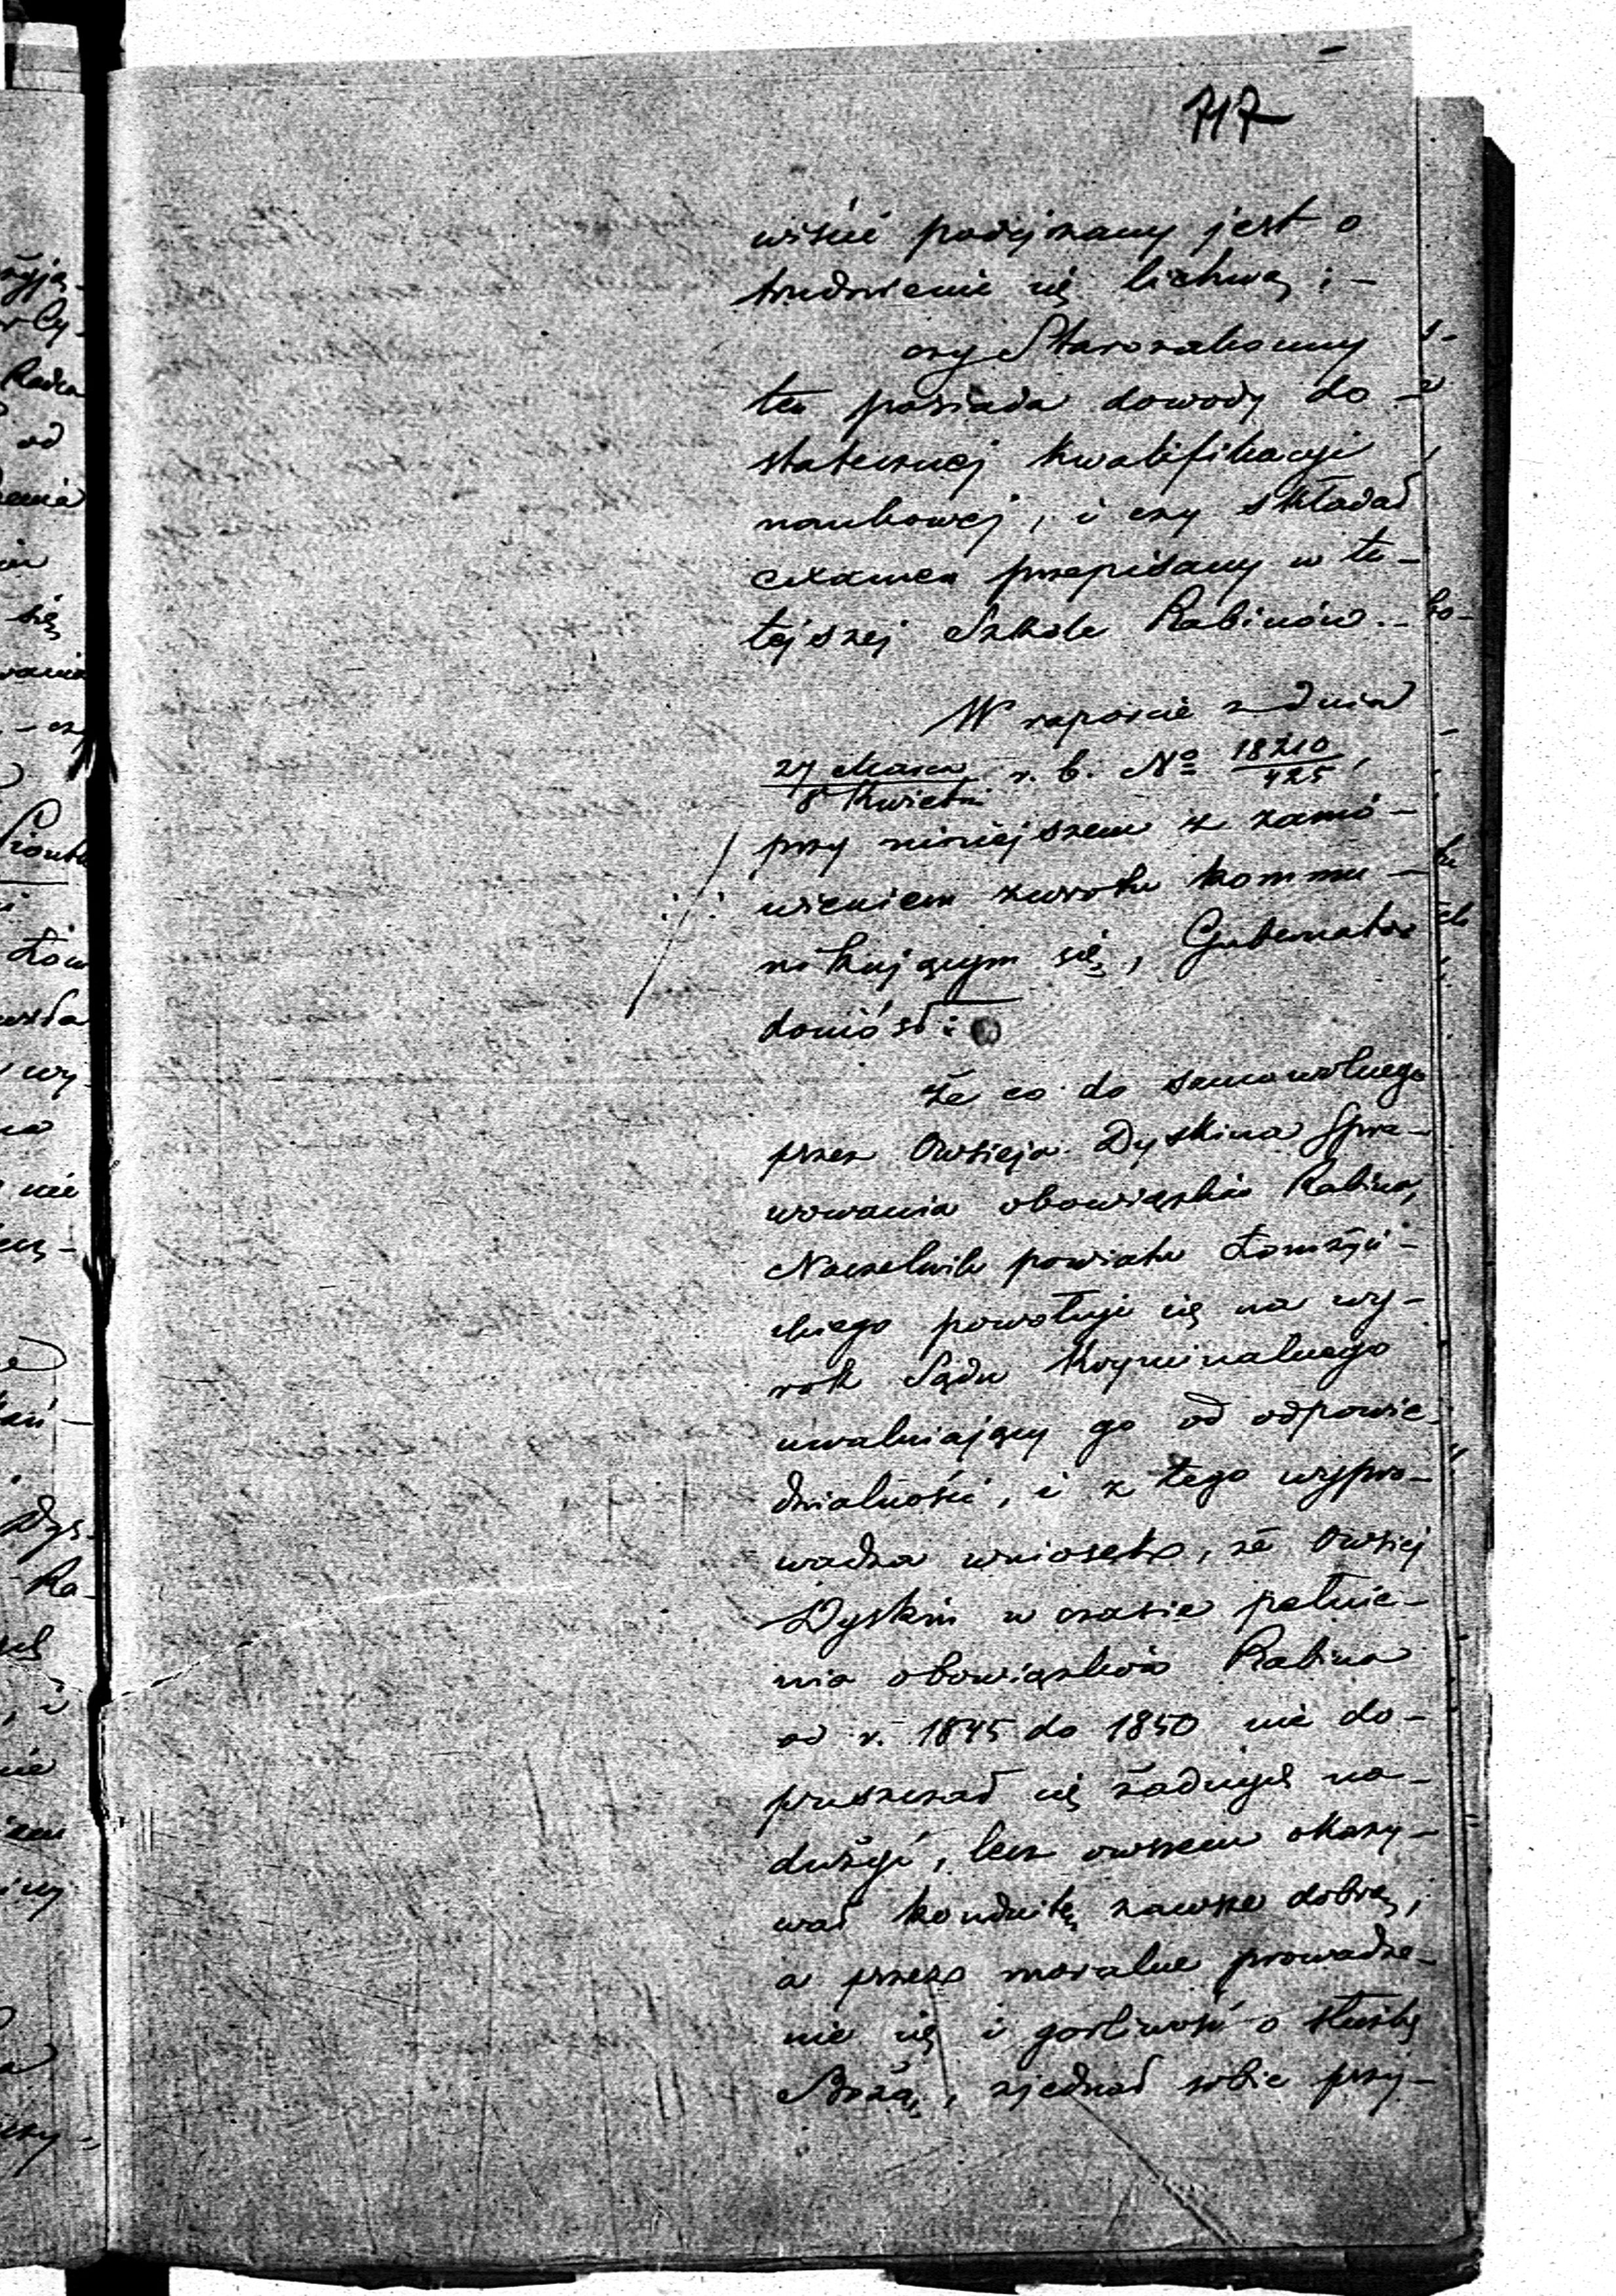 717
wiście podejrzany jest o
trudnienie się lichwą; -
czy Starozakonny
ten posiada dowody do-
statecznej kwalifikacyi
naukowej, i czy składał
examen przepisany w tu-
tejszej Szkole Rabinów. -
W raporcie z dnia
27 Marca / 8 Kwietni r. b. No 18210/425,
przy niniejszem z zamó-
wieniem zwrotu kommu-
nikującym się, Gubernator
doniósł:
że co do samowolnego
przez Owsieja Dyskina spra-
wowania obowiązków Rabina,
Naczelnik powiatu Łomżyń-
skiego powołuje się na wy-
rok Sądu Kryminalnego
uwalniający go od odpowie-
dzialności, i z tego wypro-
wadza wniosek, że Owsiej
Dyskin w czasie pełnie-
nia obowiązków Rabina
od r. 1845 do 1850 nie do-
puszczał się żadnych na-
dużyć, lecz owszem okazy-
wał konduitę zawsze dobrą,
a przez moralne prowadze-
nie się i gorliwość o służbę
Bożą, zjednał sobie przy-